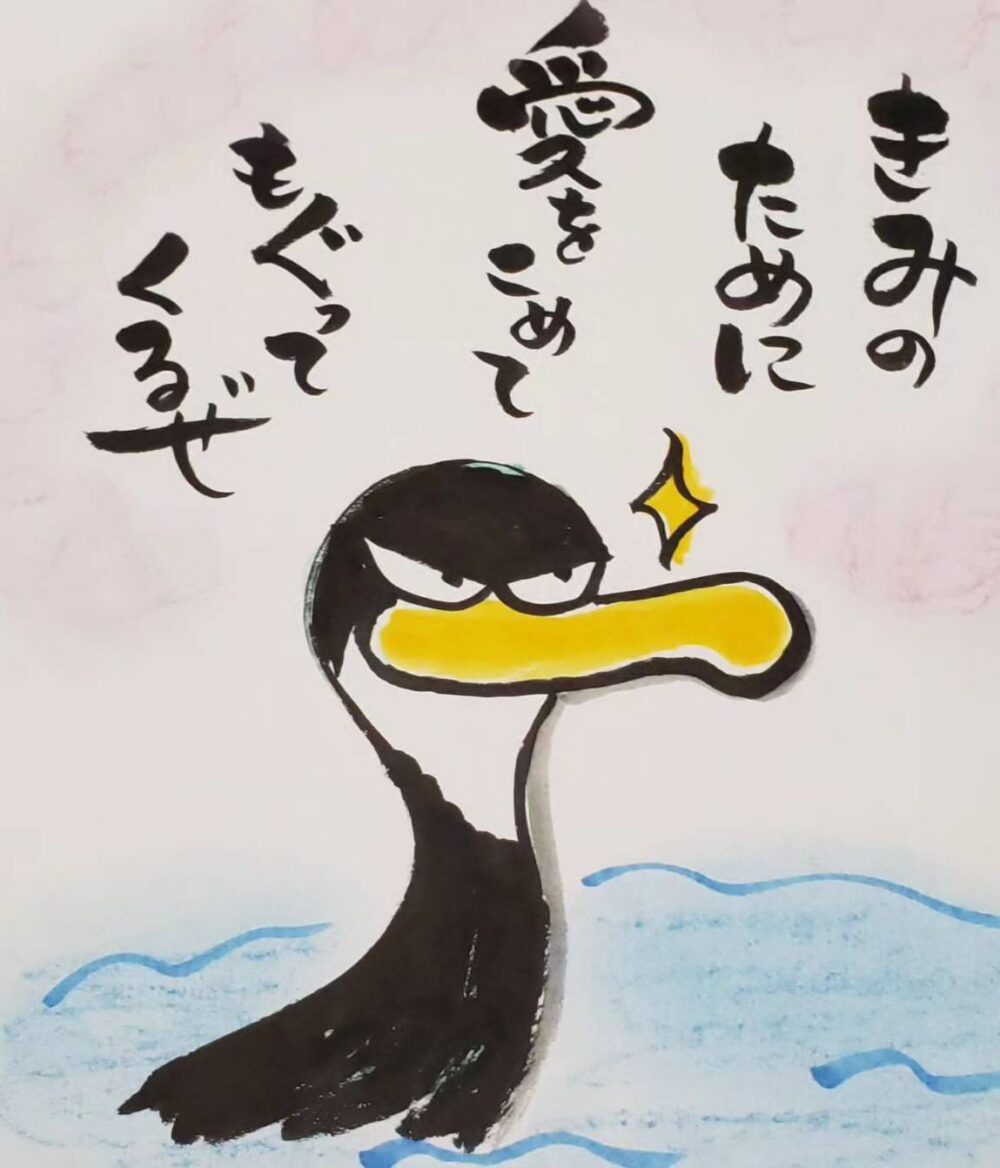 きみの
ために
愛を
こめて
もぐって
くるぜ